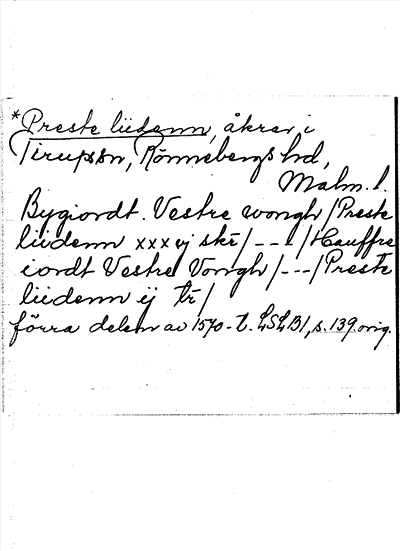 *Preste liidenn, åkrar i
Tirups sn, Rönnebergs hd,
Malm. l.
Bygiordt. Vestre wongh / Preste
liidenn xxx vj skr / - - - / Hauffre
iordt Vestre Vongh / - - - / Preste
liidenn ij tr /
förra delen av 1570-t. LSLB1, s. 139 orig.